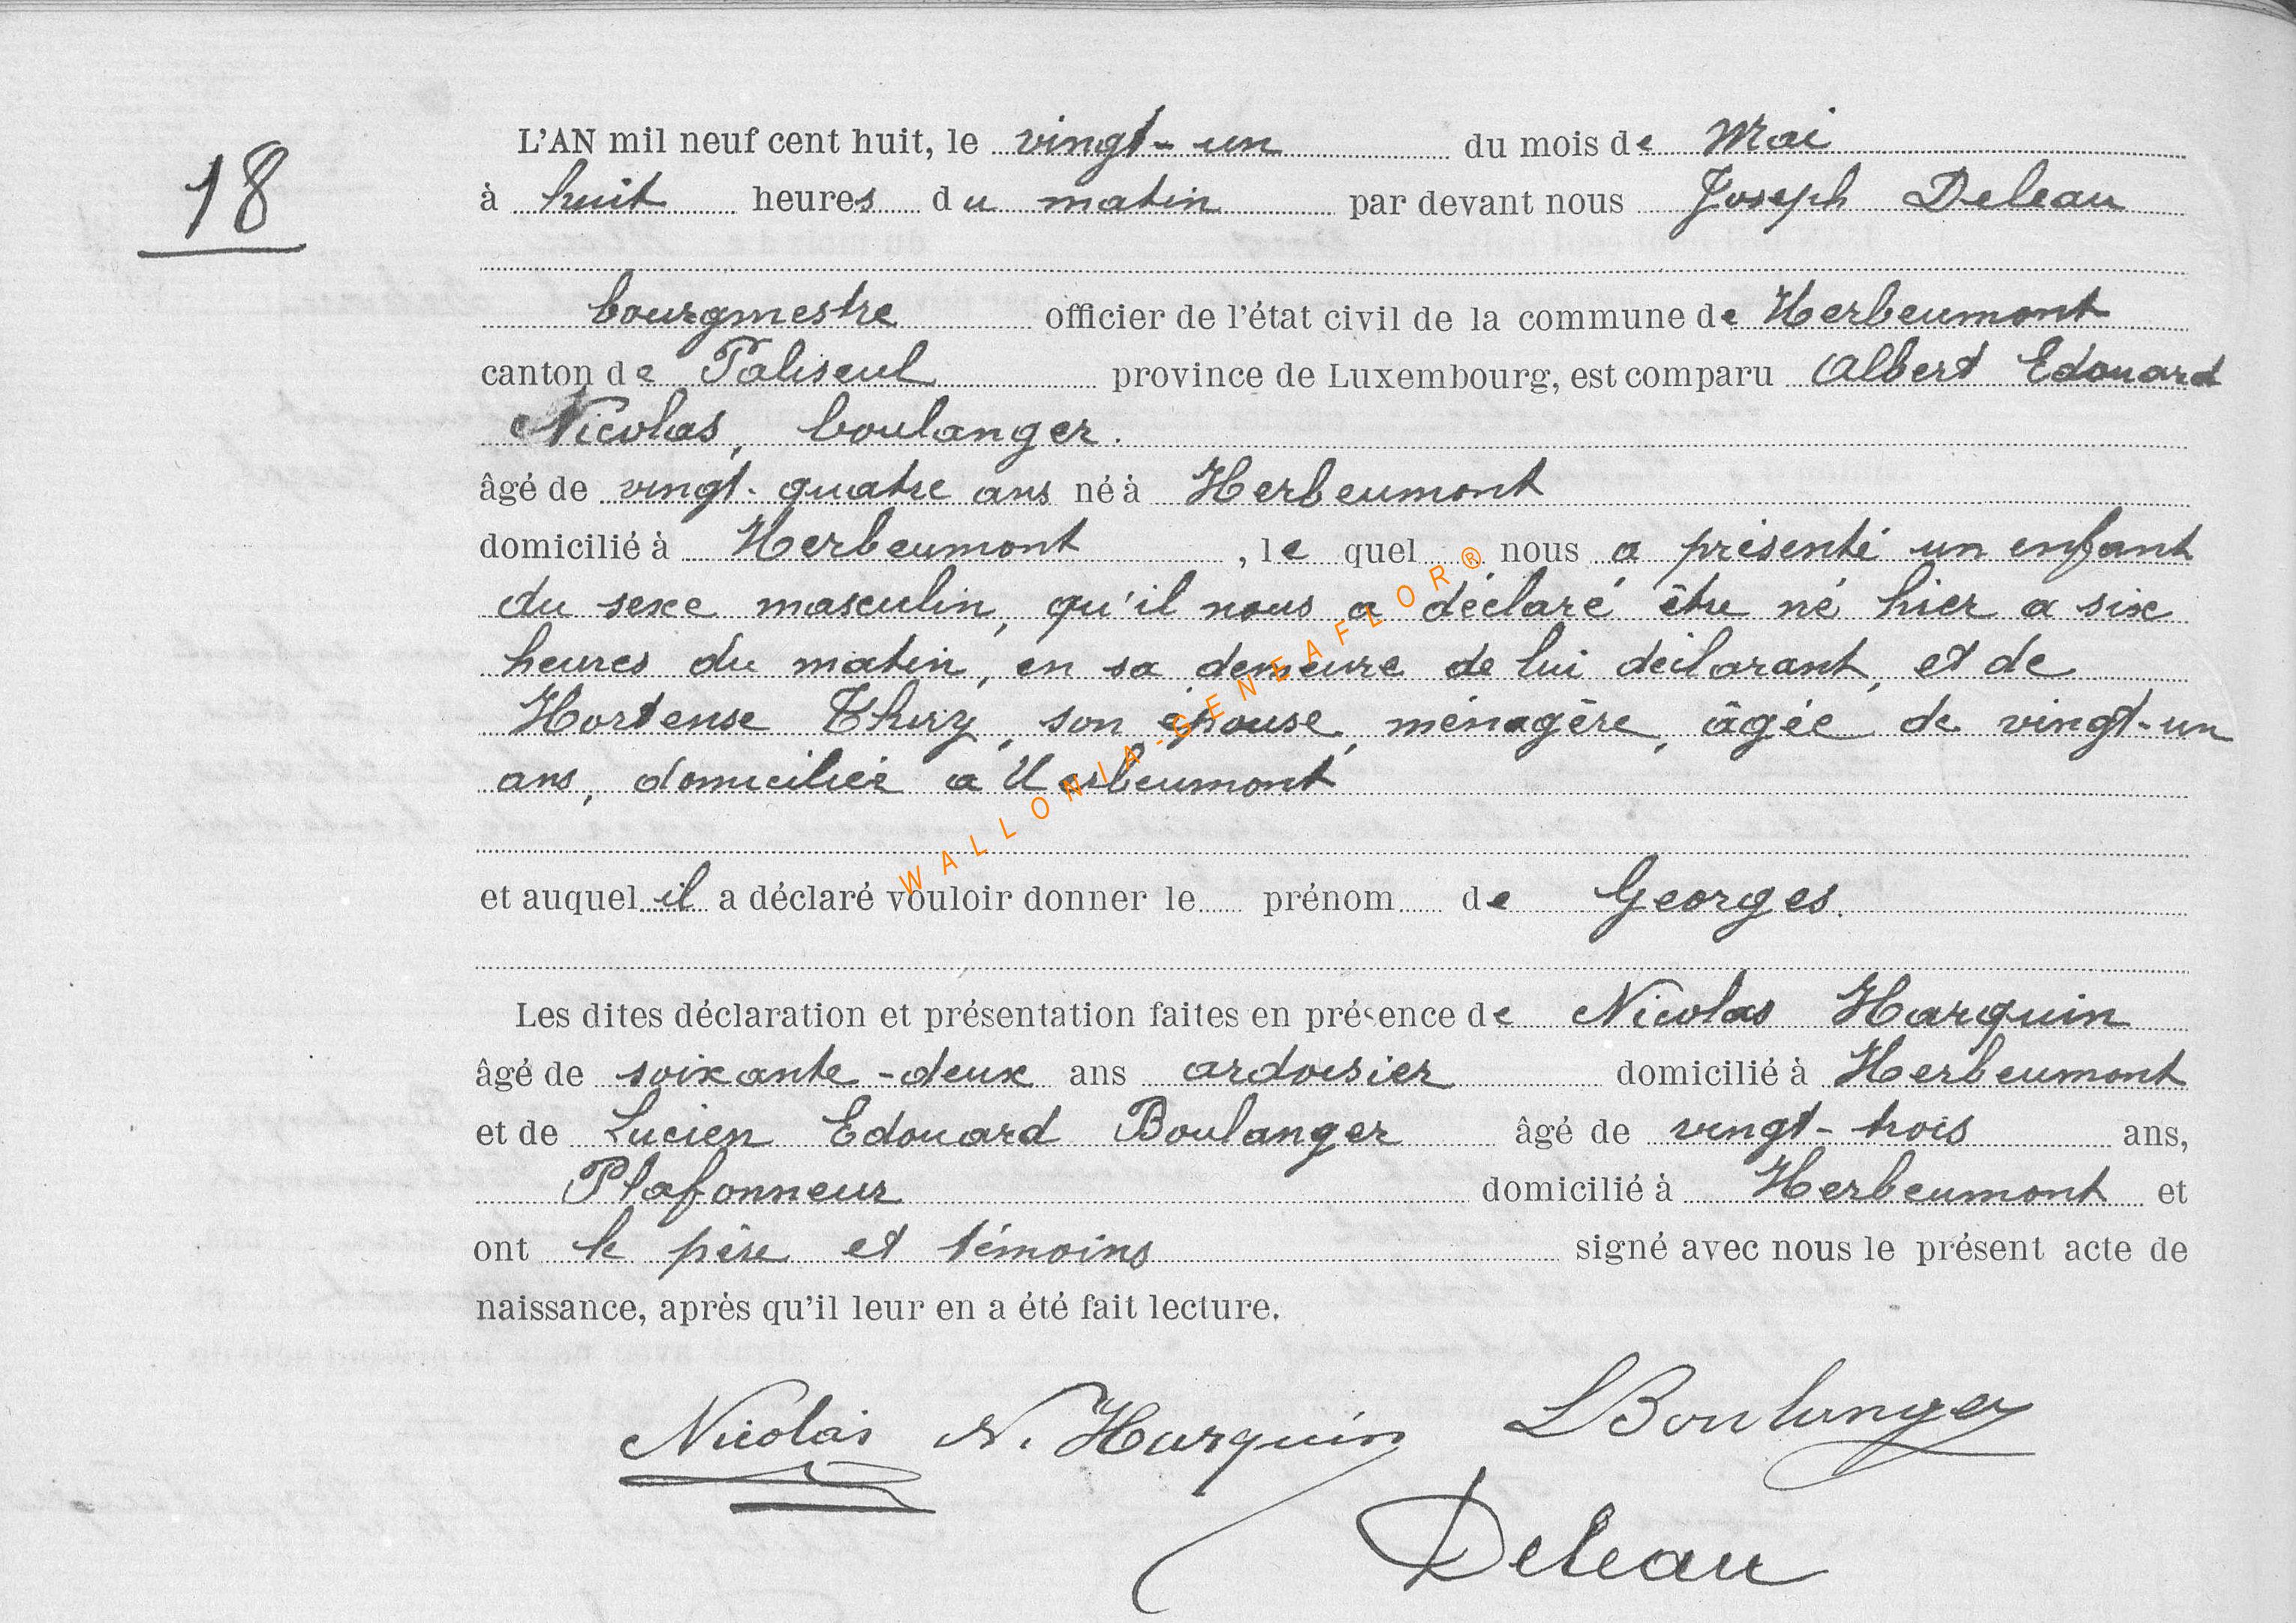 18
L'AN mil neuf cent huit, le vingt-un du mois de Mai
à huit heures du matin par devant nous Joseph Deleau
bourgmestre officier de l'état civil de la commune de Herbeumont
canton de Paliseul province de Luxembourg, est comparu Albert Edouard
Nicolas, boulanger.
âgé de vingt-quatre ans né à Herbeumont
domicilié à Herbeumont, le quel nous a présenté un enfant
du sexe masculin, qu'il nous a déclaré être né hier a six
heures du matin, en sa demeure de lui déclarant, et de
Hortense Thiry, son épouse, ménagère, âgée de vingt-un
ans, domiciliée a Herbeumont
et auquel il a déclaré vouloir donner le prénom de Georges.
Les dites déclaration et présentation faites en présence de Nicolas Harquin
âgé de soixante-deux ans ardoisier domicilié à Herbeumont
et de Lucien Edouard Boulanger âgé de vingt-trois ans,
Plafonneur domicilié à Herbeumont et
ont le père et témoins signé avec nous le présent acte de
naissance, après qu'il leur en a été fait lecture.
Nicolas N. Harquin LBoulanger
Deleau
WALLONIA-GENEAFLOR®